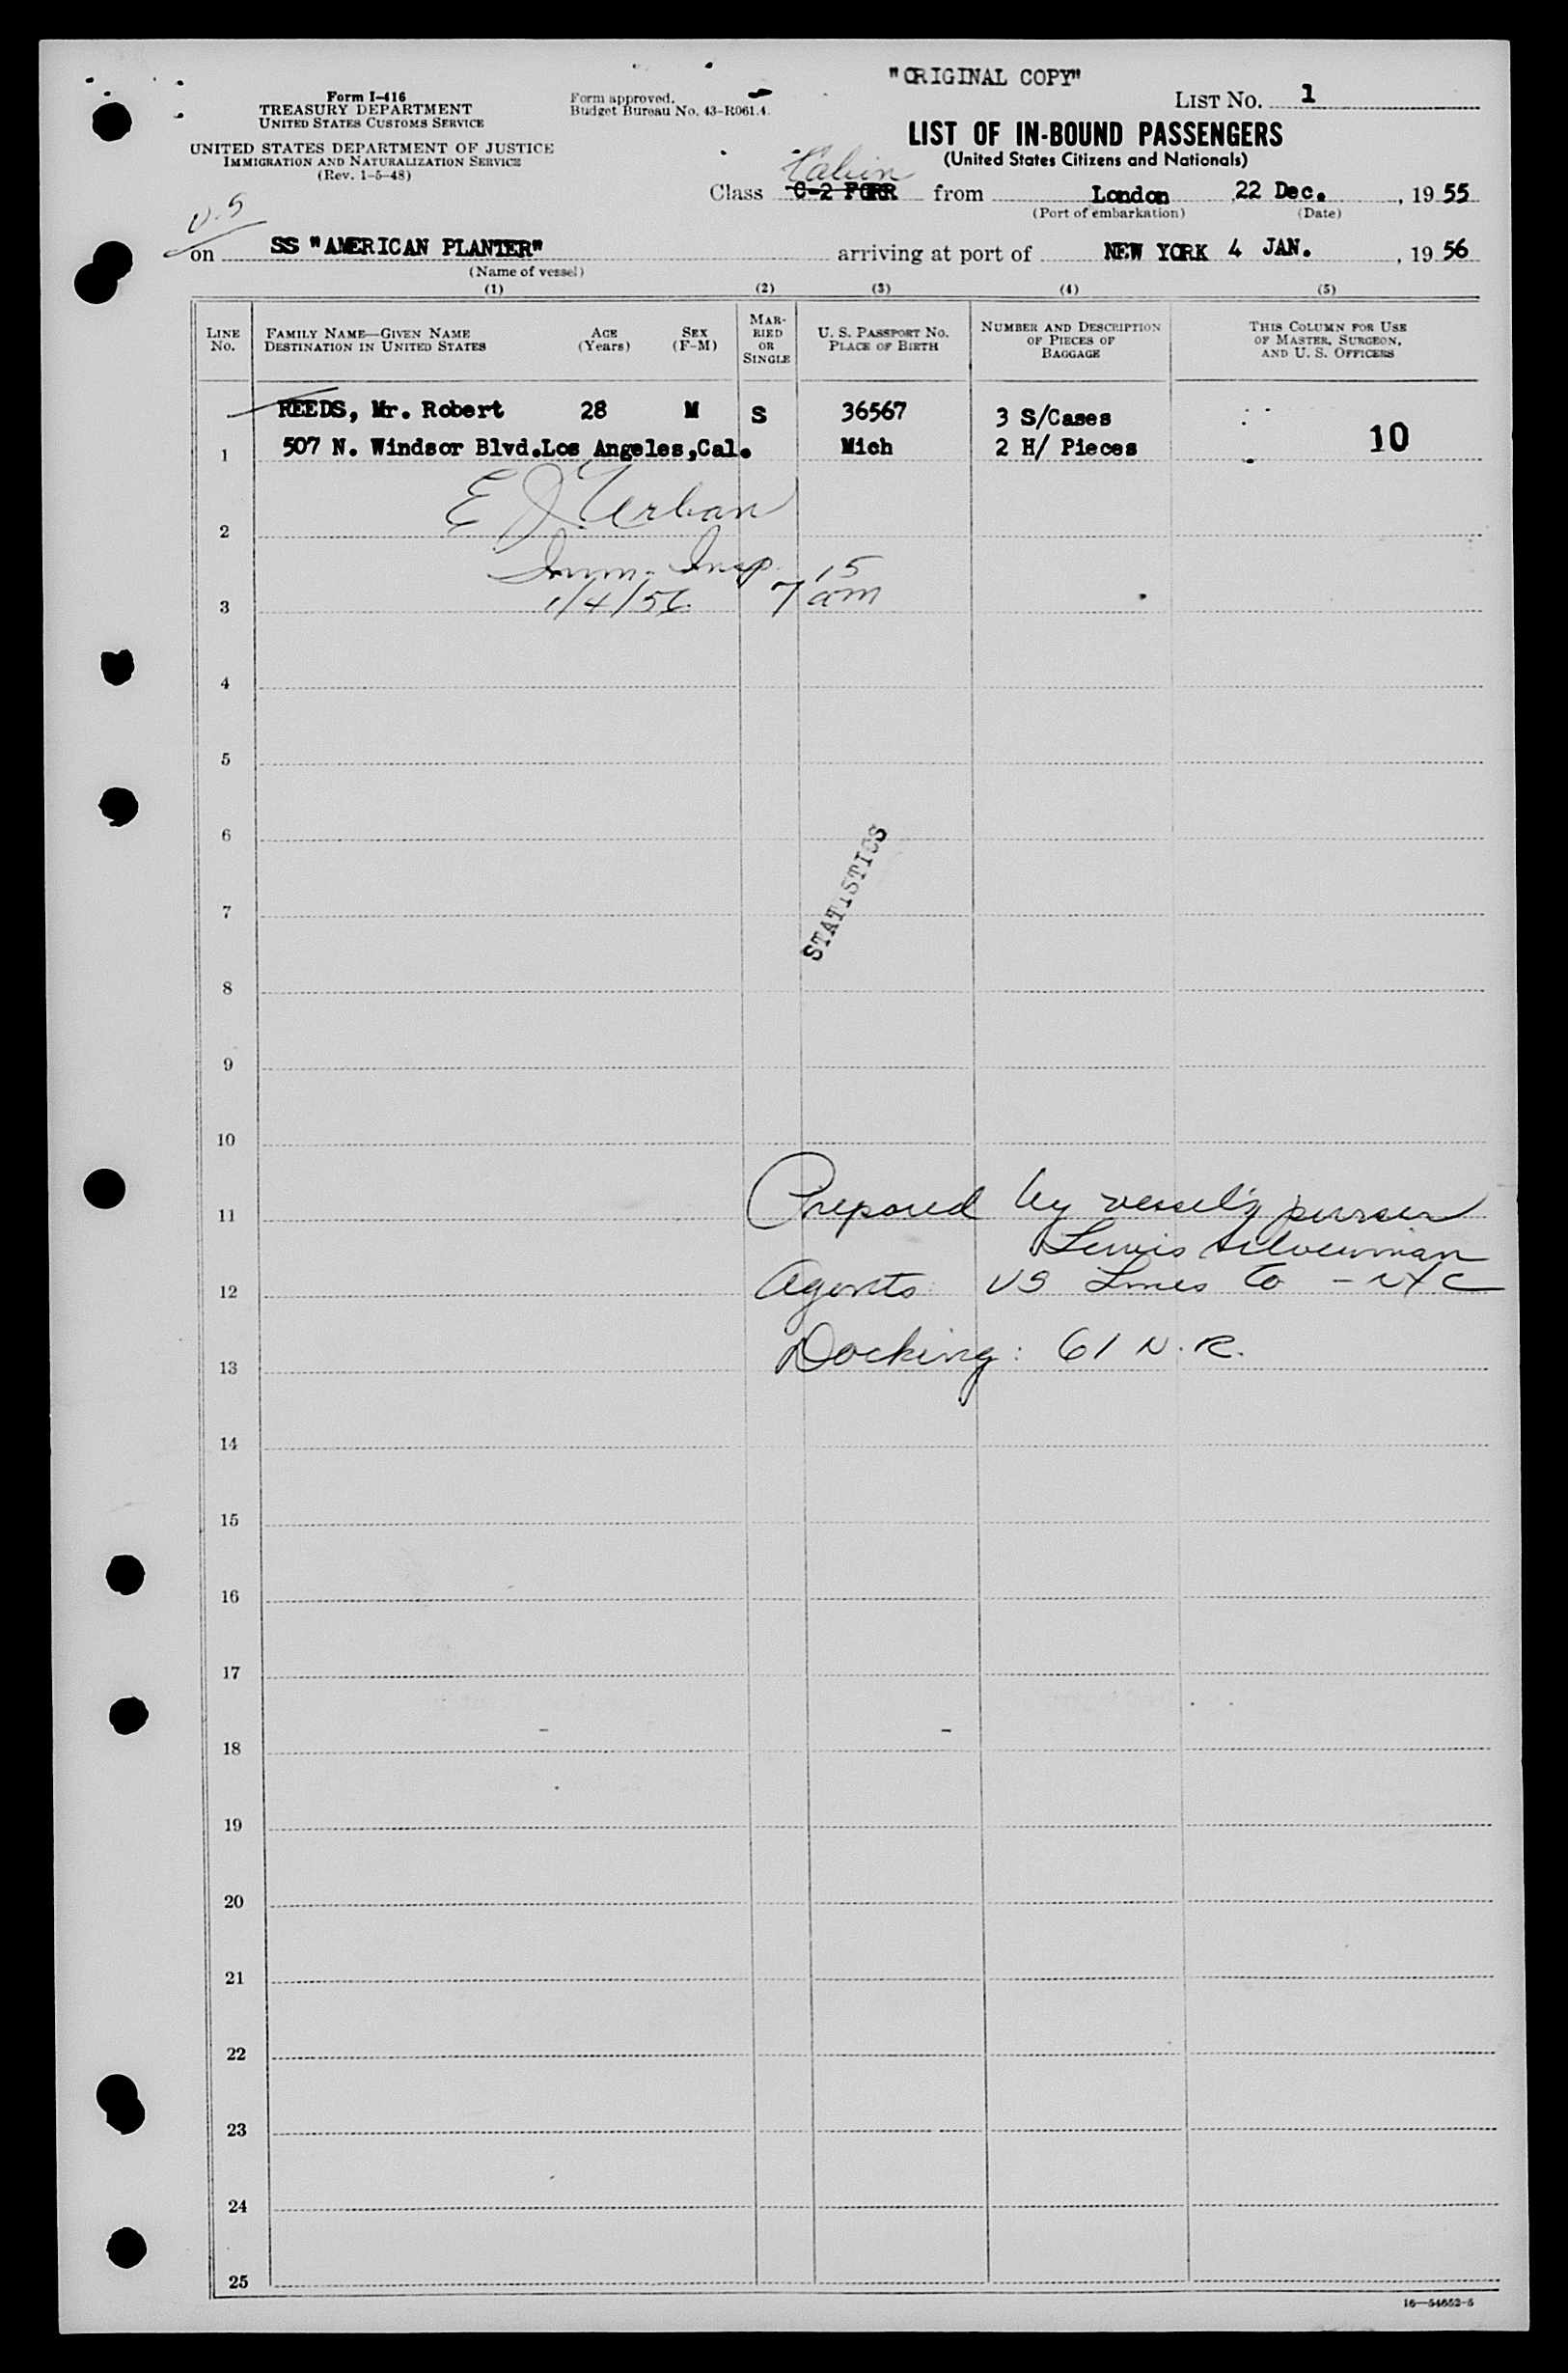 "ORIGINAL COPY"
Form I-416
TREASURY DEPARTMENT
UNITED STATES CUSTOMS SERVICE
UNITED STATES DEPARTMENT OF JUSTICE
IMMIGRATION AND NATURALIZATION SERVICE
(Rev. 1-5-48)
Form approved.
Budget Bureau No. 43-R061.4.
LIST NO. 1
LIST OF IN-BOUND PASSENGERS
(United States Citizens and Nationals)
Cabin
Class C-2 FORR from London, 22 Dec., 1955
(Port of embarkation) (Date)
U.S
on SS "AMERICAN PLANTER" arriving at port of NEW YORK 4 JAN., 1956
(Name of vessel)
(1) (2) (3) (4) (5)
LINE NO.
FAMILY NAME—GIVEN NAME
DESTINATION IN UNITED STATES
AGE (Years)
SEX (F-M)
MARRIED OR SINGLE
U. S. PASSPORT NO.
PLACE OF BIRTH
NUMBER AND DESCRIPTION OF PIECES OF BAGGAGE
THIS COLUMN FOR USE OF MASTER, SURGEON, AND U. S. OFFICERS
REEDS, Mr. Robert 28 M S 36567 3 S/Cases
1 507 N. Windsor Blvd.Los Angeles,Cal. Mich 2 H/ Pieces 10
E J Urban
2
Imm. Insp.
3 1/4/56 7 15 am
4
5
6
STATISTICS
7
8
9
10
11 Prepared by vessel's purser
Lewis Silverman
12 Agents US Lines Co - NYC
13 Docking: 61 N.R.
14
15
16
17
18
19
20
21
22
23
24
25
16—54652-5